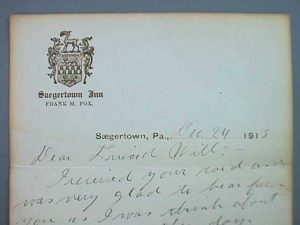 Saegertown Inn
FRANK M. FOX.
Sægertown, Pa., Dec. 24 1913
Dear Friend Will:-
I received your card and
was very glad to hear from
you as I was about
day.